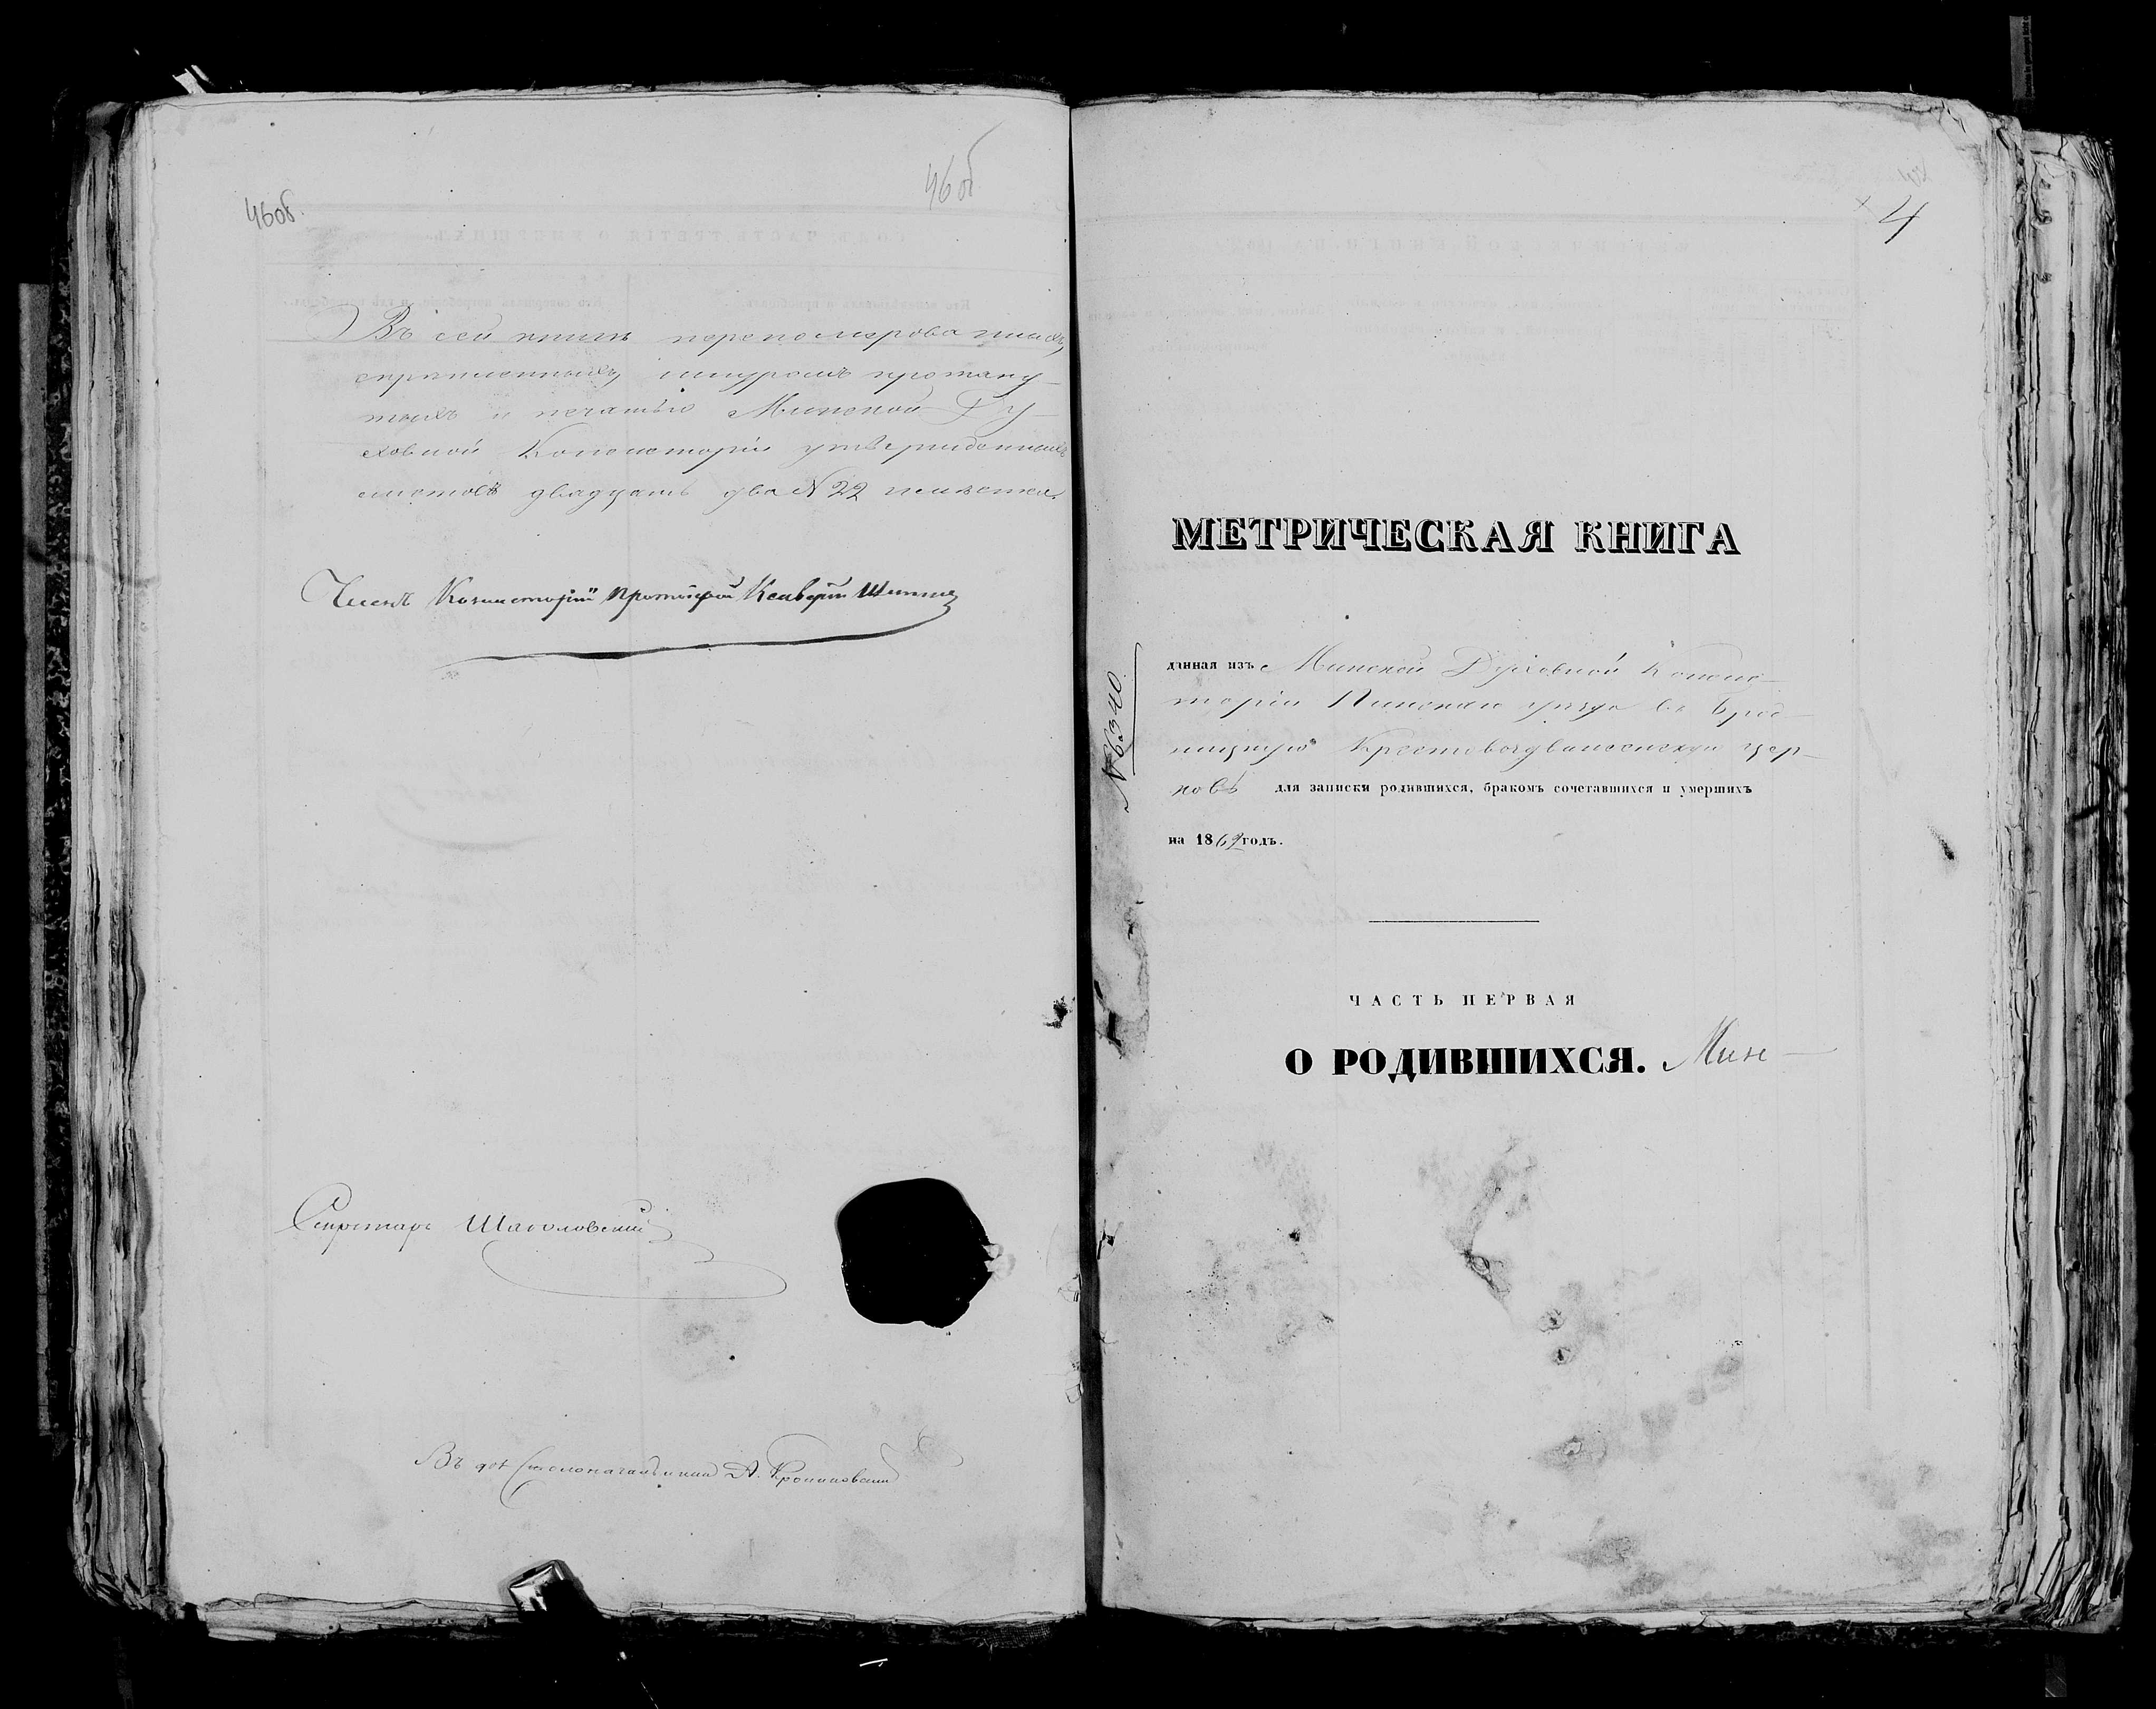 46об.
46об
Въ сей книгѣ переномерованныхъ,
скрѣпленныхъ шнуромъ протяну-
тыхъ и печатью Минской Ду-
ховной Консисторіи утвержденныхъ
листовъ двадцать два № 22
Членъ Консисторіи Протоіерей
Секретарь
Въ дол Столоначальника А.
4
МЕТРИЧЕСКАЯ КНИГА
№ 6340
данная изъ Минской Духовной Консис-
торіи Пинскаго уѣзда въ Брод-
ницкую Крестовоздвиженскую цер-
ковь для записки родившихся, бракомъ сочетавшихся и умершихъ
на 1862 годъ.
ЧАСТЬ ПЕРВАЯ
О РОДИВШИХСЯ. Мин